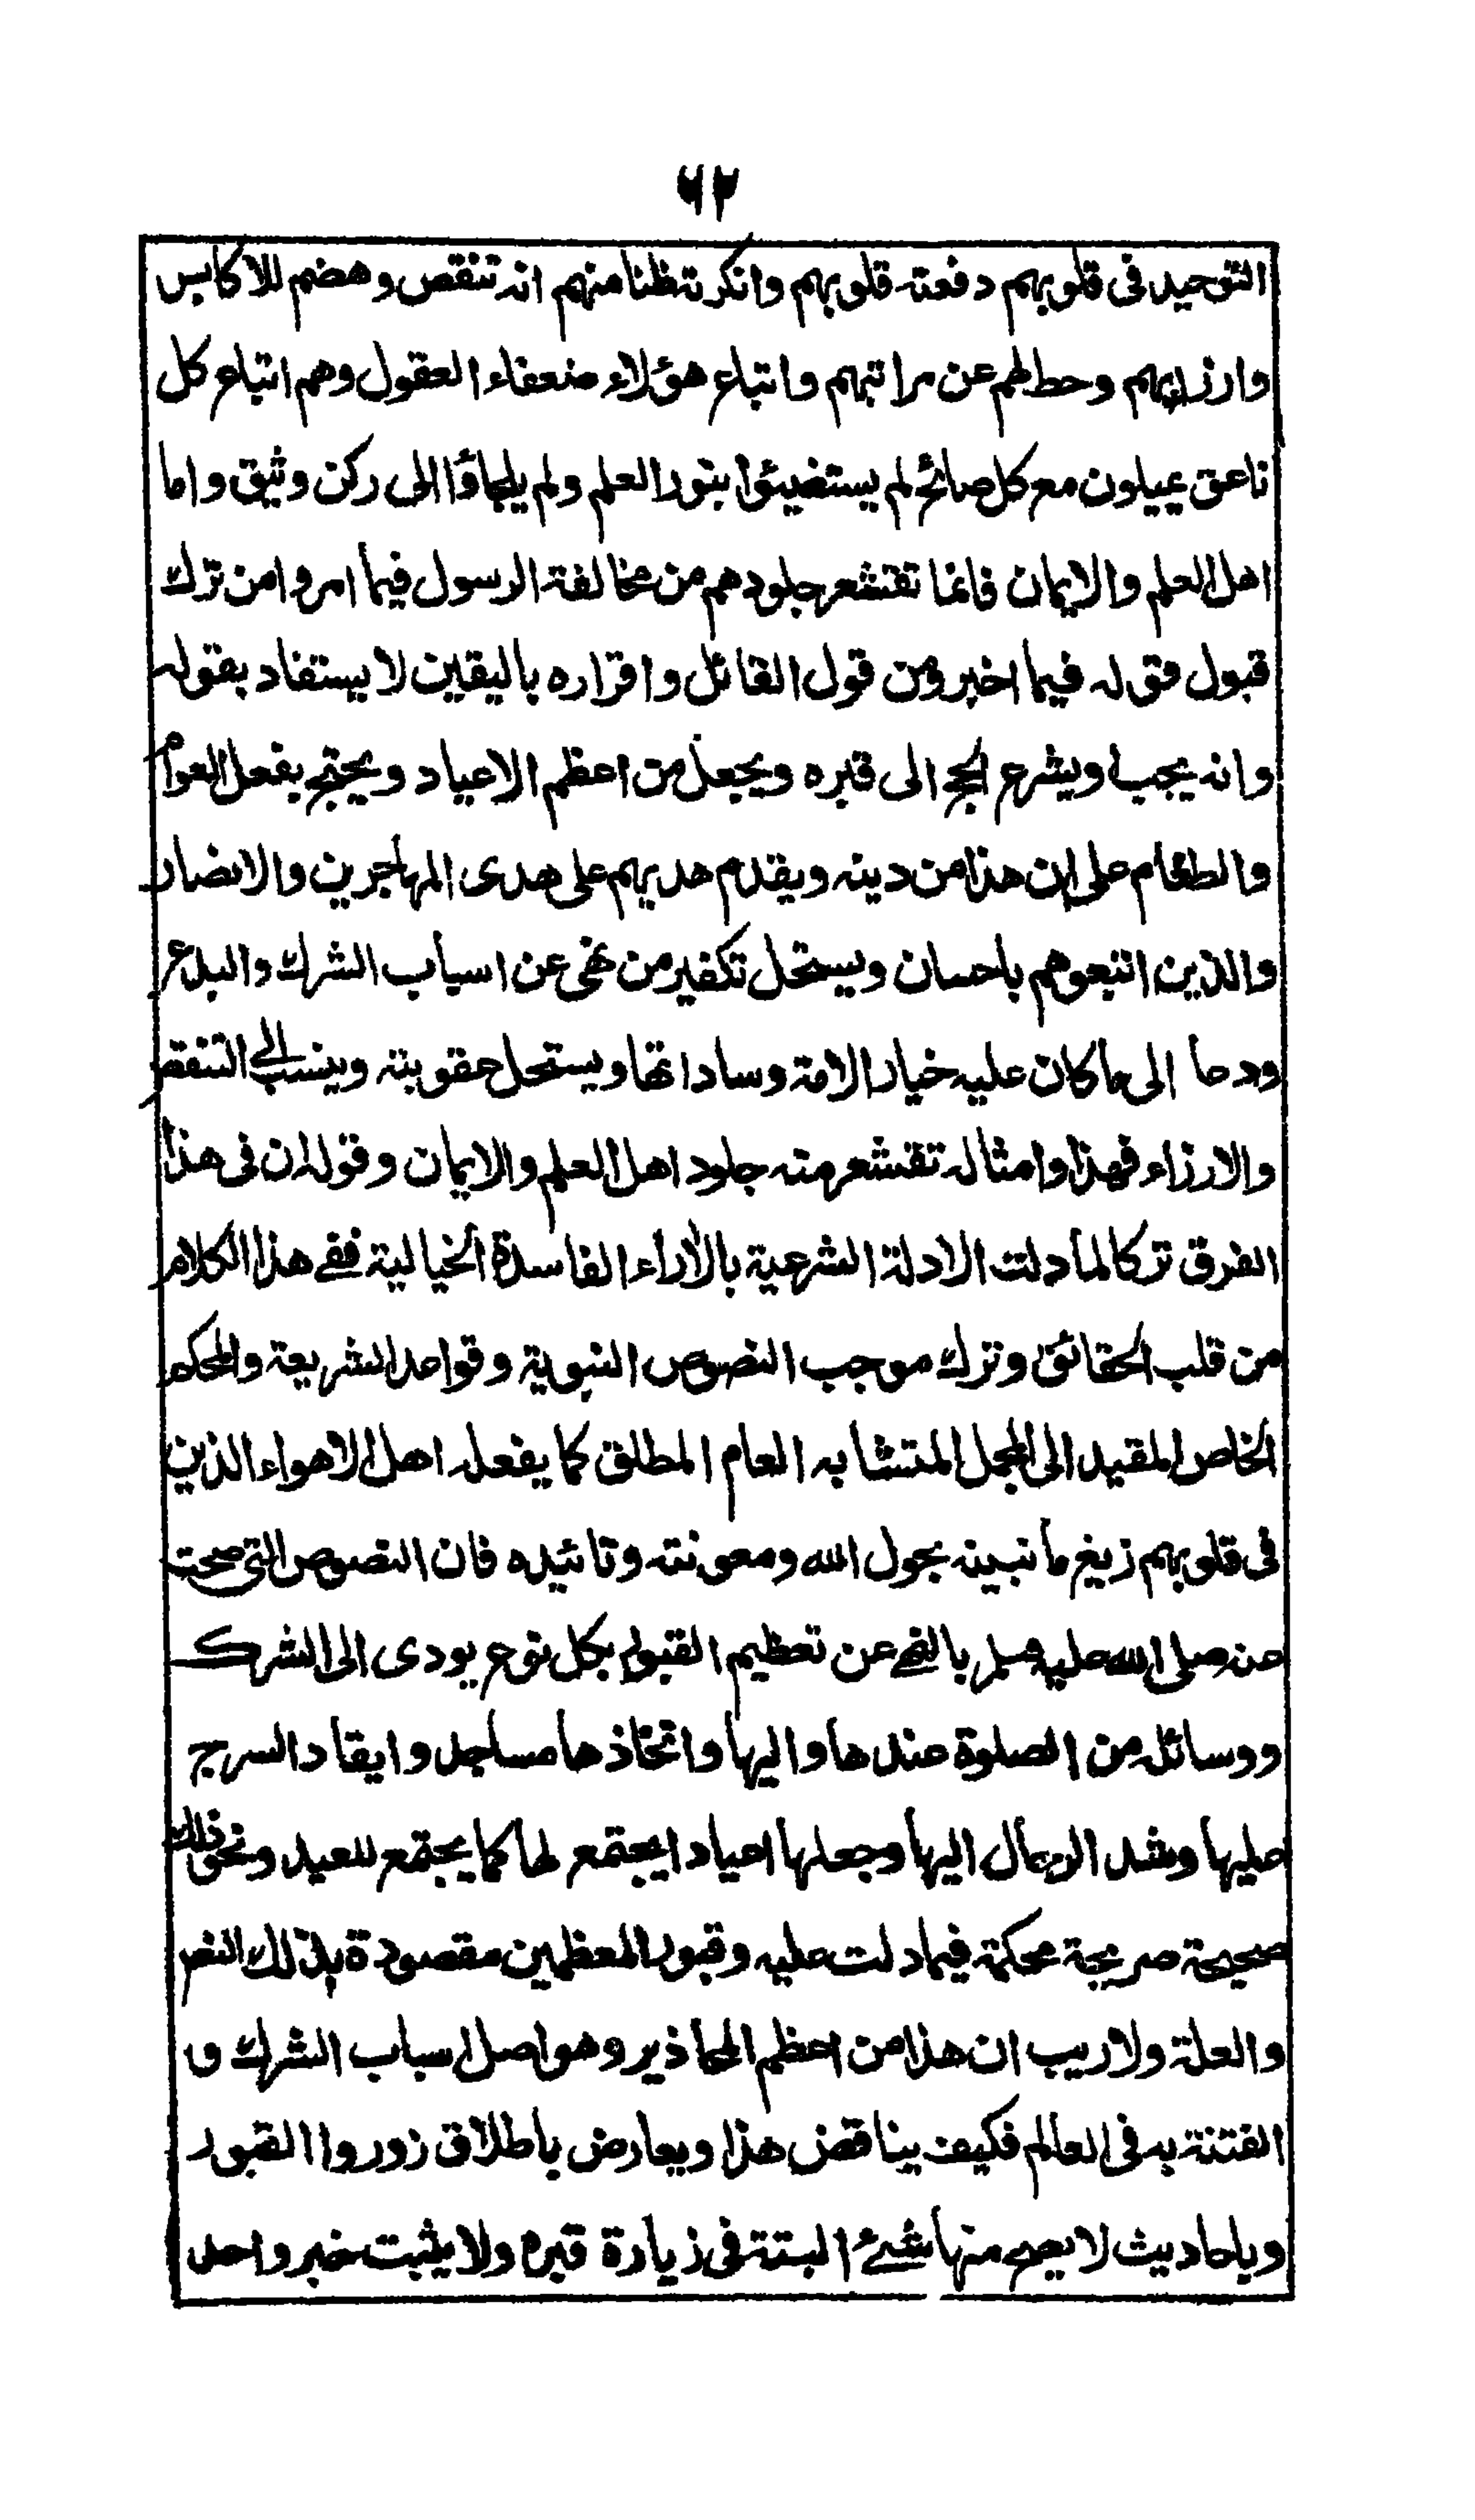 ٦٢
التوحيد فى قلوبهم دفعته قلوبهم وانكرته ظنا منهم انه تنقص وهضم للاكابر
وازراء بهم وحط لهم عن مراتبهم واتباع هؤلاء ضعفاء العقول وهم اتباع كل
ناعق يميلون مع كل صائح لم يستضيئوا بنور العلم ولم يلجاؤا الى ركن وثيق واما
اهل العلم والايمان فانما تقشعر جلودهم من مخالفة الرسول فيما امر وا من ترك
قبول قوله فيما اخبر ومن قول القائل واقراره باليقين لا يستفاد بقوله
وانه يجب او يشرع الحج الى قبره ويجعل من اعظم الاعياد ويحتج بفعل العوام
والطغام على ان هذا من دينه ويقدم هديهم على هدى المهاجرين والانصار
والذين اتبعوهم باحسان ويستحل تكفير من نهى عن اسباب الشرك والبدع
ودعا الى ما كان عليه خيار الامة وساداتها ويستحل عقوبته وينسب الى التنقص
والازراء فهذا وامثاله تقشعر منه جلود اهل العلم والايمان وقوله ان فى هذا
الفرق تركا لما دلت الادلة الشرعية بالأراء الفاسدة الخيالية ففے هذا الكلام
من قلب الحقائق وترك موجب النصوص النبوية وقواعد الشريعة والمحكم
الخاص المقيد الى المجمل المتشابه العام المطلق كما يفعله اهل الاهواء الذين
فى قلوبهم زيغ ما نبينه بحول الله ومعونته وتائيده فان النصوص التى صحت
عنه صلى الله عليه وسلم بالنهے عن تعظيم القبور بكل نوع يودى الى الشرك
ووسائله من الصلوة عندها واليها واتخاذها مساجد وايقاد السرج
عليها وشد الرحال اليها وجعلها اعيادا يجتمع لها كما يجتمع للعيد ونحو ذلك
صحيحة صريحة محكمة فيما دلت عليه وقبور المعظمين مقصودة بذلك النص
والعلة ولا ريب ان هذا من اعظم المحاذير وهو اصل اسباب الشرك و
الفتنة به فى العالم فكيف يناقض هذا ويعارض باطلاق زوروا القبور
وباحاديث لا يصح منها شئ البتة فى زيارة قبره ولا يثبت خبر واحد